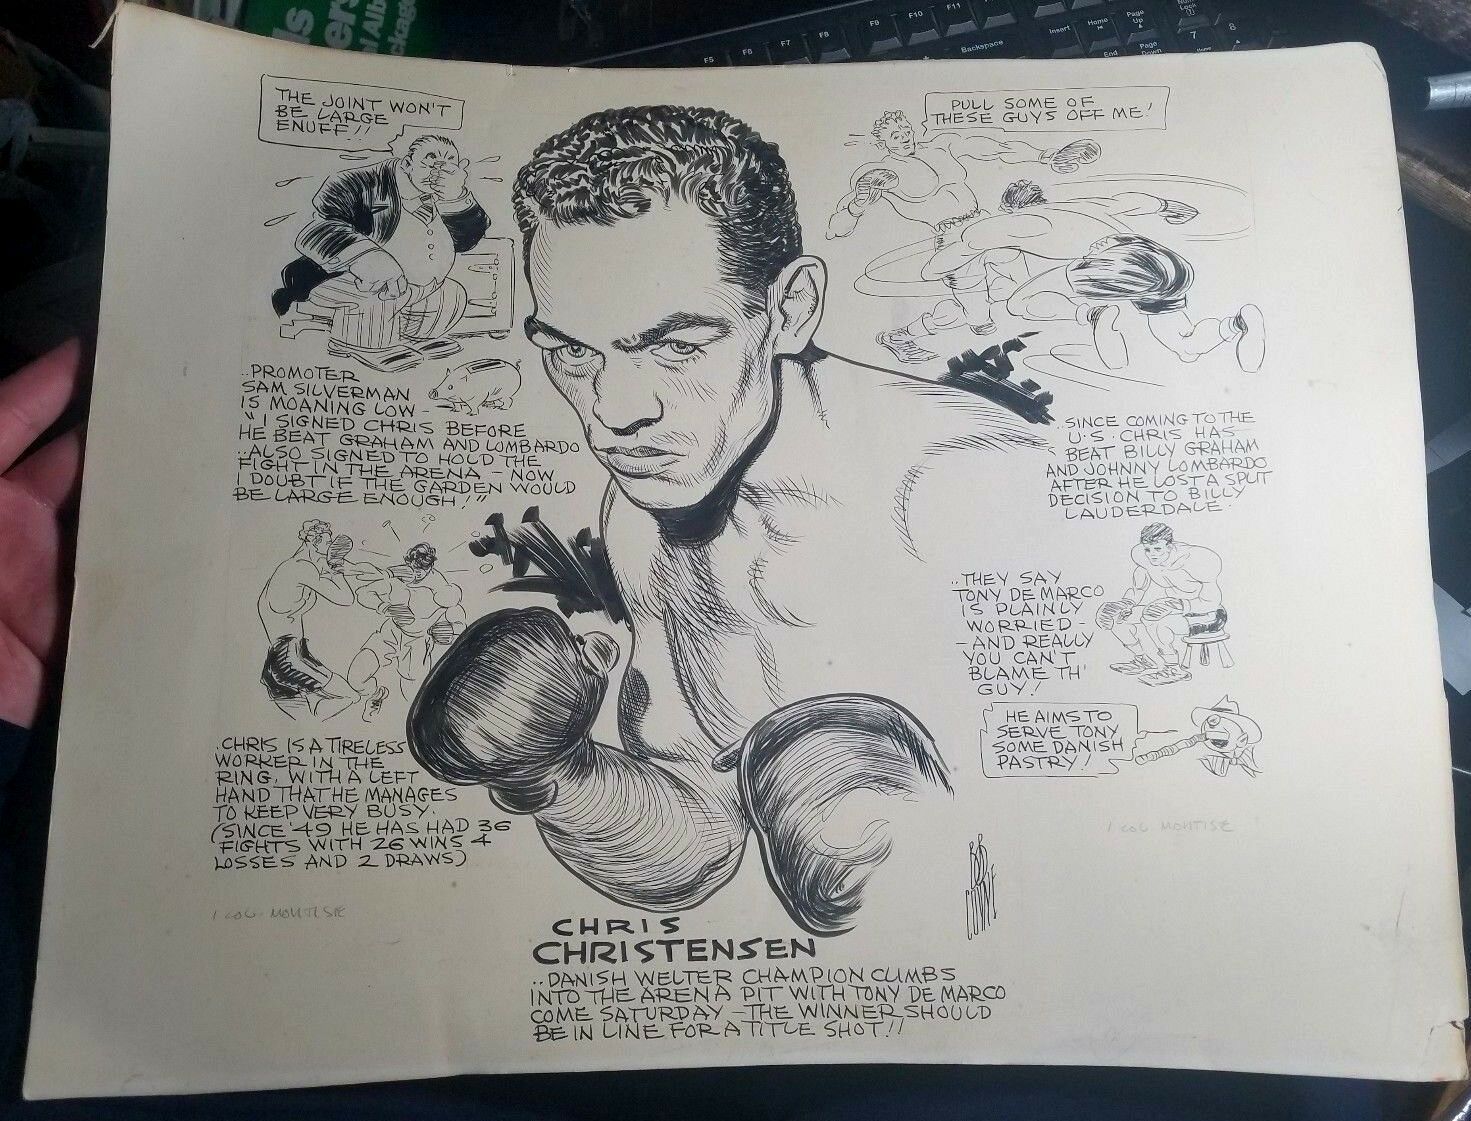 THE JOINT WON'T
BE LARGE
ENUFF!!
PULL SOME OF
THESE GUYS OFF ME!
..PROMOTER
SAM SILVERMAN
IS MOANING LOW -
"I SIGNED CHRIS BEFORE
HE BEAT GRAHAM AND LOMBARDO
..ALSO SIGNED TO HOLD THE
FIGHT IN THE ARENA - NOW
I DOUBT IF THE GARDEN WOULD
BE LARGE ENOUGH!"
..SINCE COMING TO THE
U.S. CHRIS HAS
BEAT BILLY GRAHAM
AND JOHNNY LOMBARDO
AFTER HE LOST A SPLIT
DECISION TO BILLY
LAUDERDALE.
..THEY SAY
TONY DE MARCO
IS PLAINLY
WORRIED -
- AND REALLY
YOU CAN'T
BLAME TH'
GUY!
HE AIMS TO
SERVE TONY
SOME DANISH
PASTRY!
.CHRIS IS A TIRELESS
WORKER IN THE
RING, WITH A LEFT
HAND THAT HE MANAGES
TO KEEP VERY BUSY.
(SINCE '49 HE HAS HAD 36
FIGHTS WITH 26 WINS 4
LOSSES AND 2 DRAWS)
1 COL. MORTISE
1 COL MORTISE
BOB
COYNE
CHRIS
CHRISTENSEN
..DANISH WELTER CHAMPION CLIMBS
INTO THE ARENA PIT WITH TONY DE MARCO
COME SATURDAY - THE WINNER SHOULD
BE IN LINE FOR A TITLE SHOT!!
F5 F6 F7 F8 F9 F10 F11
Backspace
Insert Home Page Up
End Page Down
Num Lock
7 8
Home